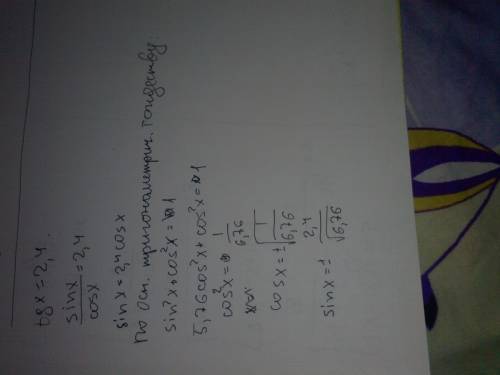 tg x = 2,4.
sin x / cos x = 2,4
sin x = 2,4 cos x
По осн. тригонометрич. тождеству:
sin²x + cos²x = 1
5,76 cos²x + cos²x = 1
cos²x = 1 / 6,76
cos x = ± √(1 / 6,76)
sin x = ± 2,4 / √6,76